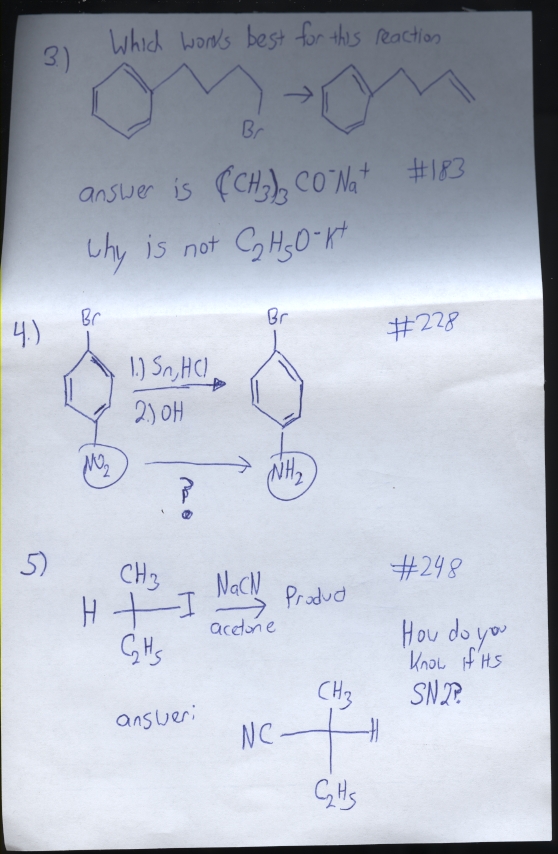 3.) Which works best for this reaction
Br
answer is (CH3)3 CO-Na+ #183
why is not C2H5O-K+
4.) Br Br #228
1.) Sn, HCl
2.) OH
NO2 NH2
?
5) #248
CH3
H I NaCN Product
acetone
C2H5
How do you
know if it's
SN2?
answer: CH3
NC H
C2H5